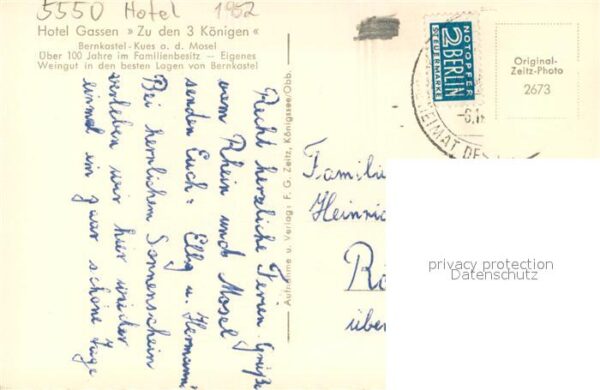 5550 Hotel 1952
Hotel Gassen » Zu den 3 Königen «
Bernkastel-Kues a. d. Mosel
Über 100 Jahre im Familienbesitz — Eigenes
Weingut in den besten Lagen von Bernkastel
Recht herzliche Ferien-Grüße
vom Rhein und Mosel
senden Euch: Elly u. Hermann
Bei herrlichem Sonnenschein
verleben wir hier wieder
einmal ein paar schöne Tage
Aufnahme u. Verlag: F. G. Zeitz, Königssee/Obb.
NOTOPFER
2 BERLIN
STEUERMARKE
HEIMAT DES
Original-
Zeitz-Photo
2673
Familie
Heinri
Rö
über
privacy protection
Datenschutz